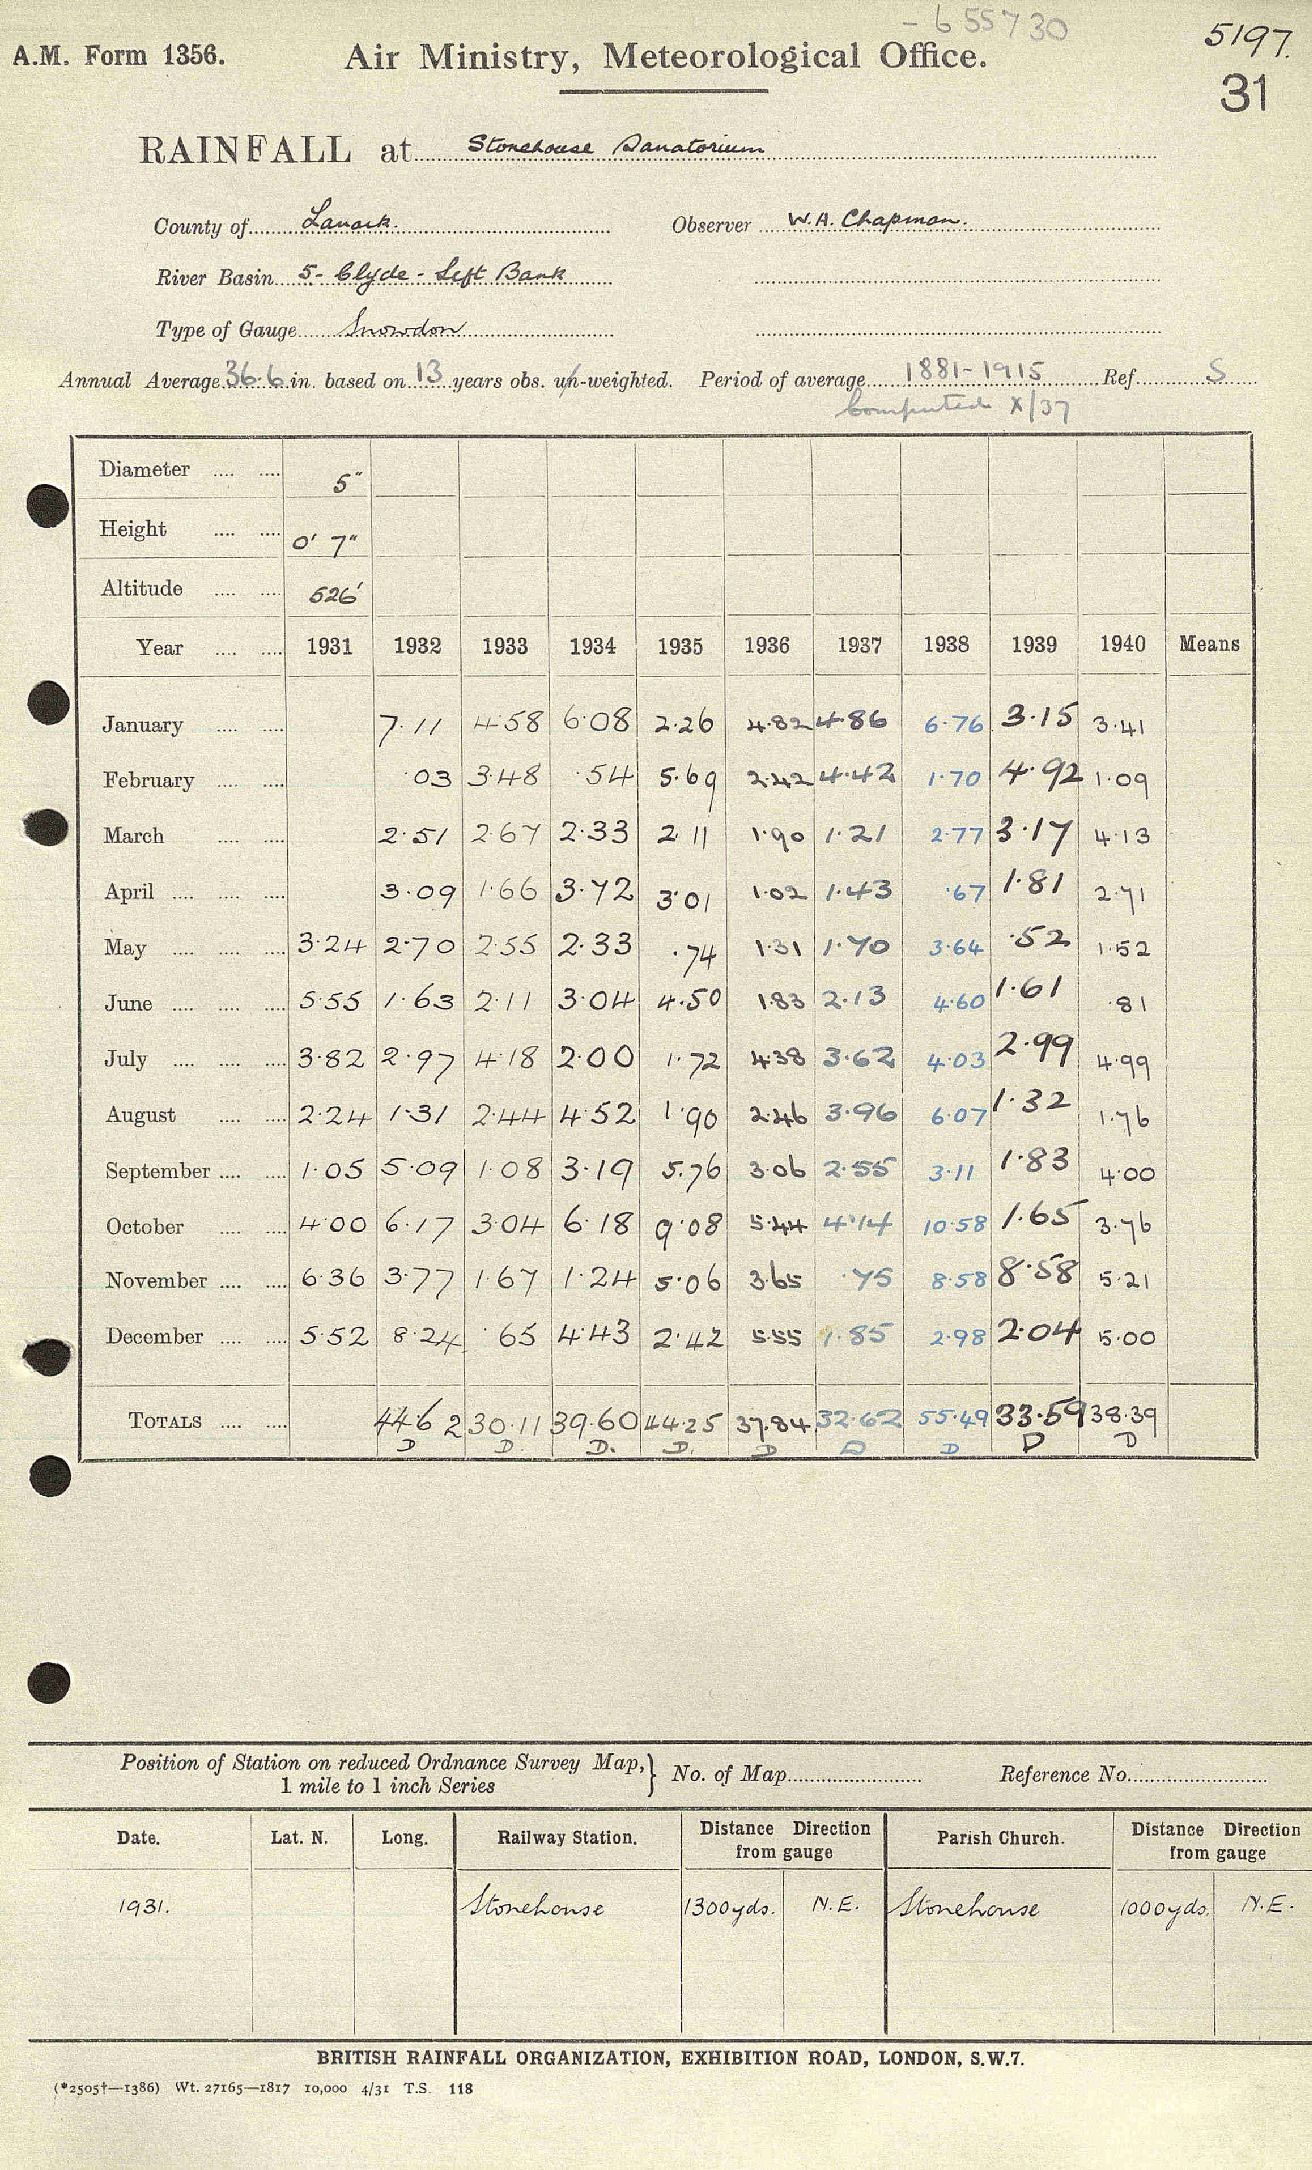 - 655730
5197.
A.M. Form 1356. Air Ministry, Meteorological Office.
31
RAINFALL at Stonehouse Sanatorium
County of Lanark. Observer W.A. Chapman.
River Basin 5- Clyde - Left Bank
Type of Gauge Snowdon
Annual Average 36.6 in. based on 13 years obs. un-weighted. Period of average 1881-1915 Ref. S
Computed X/37
Diameter .... .... 5"
Height .... .... 0' 7"
Altitude .... .... 526'
Year .... .... 1931 1932 1933 1934 1935 1936 1937 1938 1939 1940 Means
January .... .... 7.11 4.58 6.08 2.26 4.82 4.86 6.76 3.15 3.41
February .... .... .03 3.48 .54 5.69 2.42 4.42 1.70 4.92 1.09
March .... .... 2.51 2.67 2.33 2.11 1.90 1.21 2.77 3.17 4.13
April .... .... .... 3.09 1.66 3.72 3.01 1.02 1.43 .67 1.81 2.71
May .... .... .... 3.24 2.70 2.55 2.33 .74 1.31 1.70 3.64 .52 1.52
June .... .... .... 5.55 1.63 2.11 3.04 4.50 1.83 2.13 4.60 1.61 .81
July .... .... .... 3.82 2.97 4.18 2.00 1.72 4.38 3.62 4.03 2.99 4.99
August .... .... 2.24 1.31 2.44 4.52 1.90 2.46 3.96 6.07 1.32 1.76
September .... .... 1.05 5.09 1.08 3.19 5.76 3.06 2.55 3.11 1.83 4.00
October .... .... 4.00 6.17 3.04 6.18 9.08 5.44 4.14 10.58 1.65 3.76
November .... .... 6.36 3.77 1.67 1.24 5.06 3.65 .75 8.58 8.58 5.21
December .... .... 5.52 8.24 .65 4.43 2.42 5.55 1.85 2.98 2.04 5.00
TOTALS .... .... 44.62 30.11 39.60 44.25 37.84 32.62 55.49 33.59 38.39
D D. D. D. D D D D D
Position of Station on reduced Ordnance Survey Map, } No. of Map Reference No.
1 mile to 1 inch Series
Date. Lat. N. Long. Railway Station. Distance from gauge Direction Parish Church. Distance from gauge Direction
1931. Stonehouse 1300yds. N.E. Stonehouse 1000yds. N.E.
BRITISH RAINFALL ORGANIZATION, EXHIBITION ROAD, LONDON, S.W.7.
(*2505†—1386) Wt. 27165—1817 10,000 4/31 T.S. 118